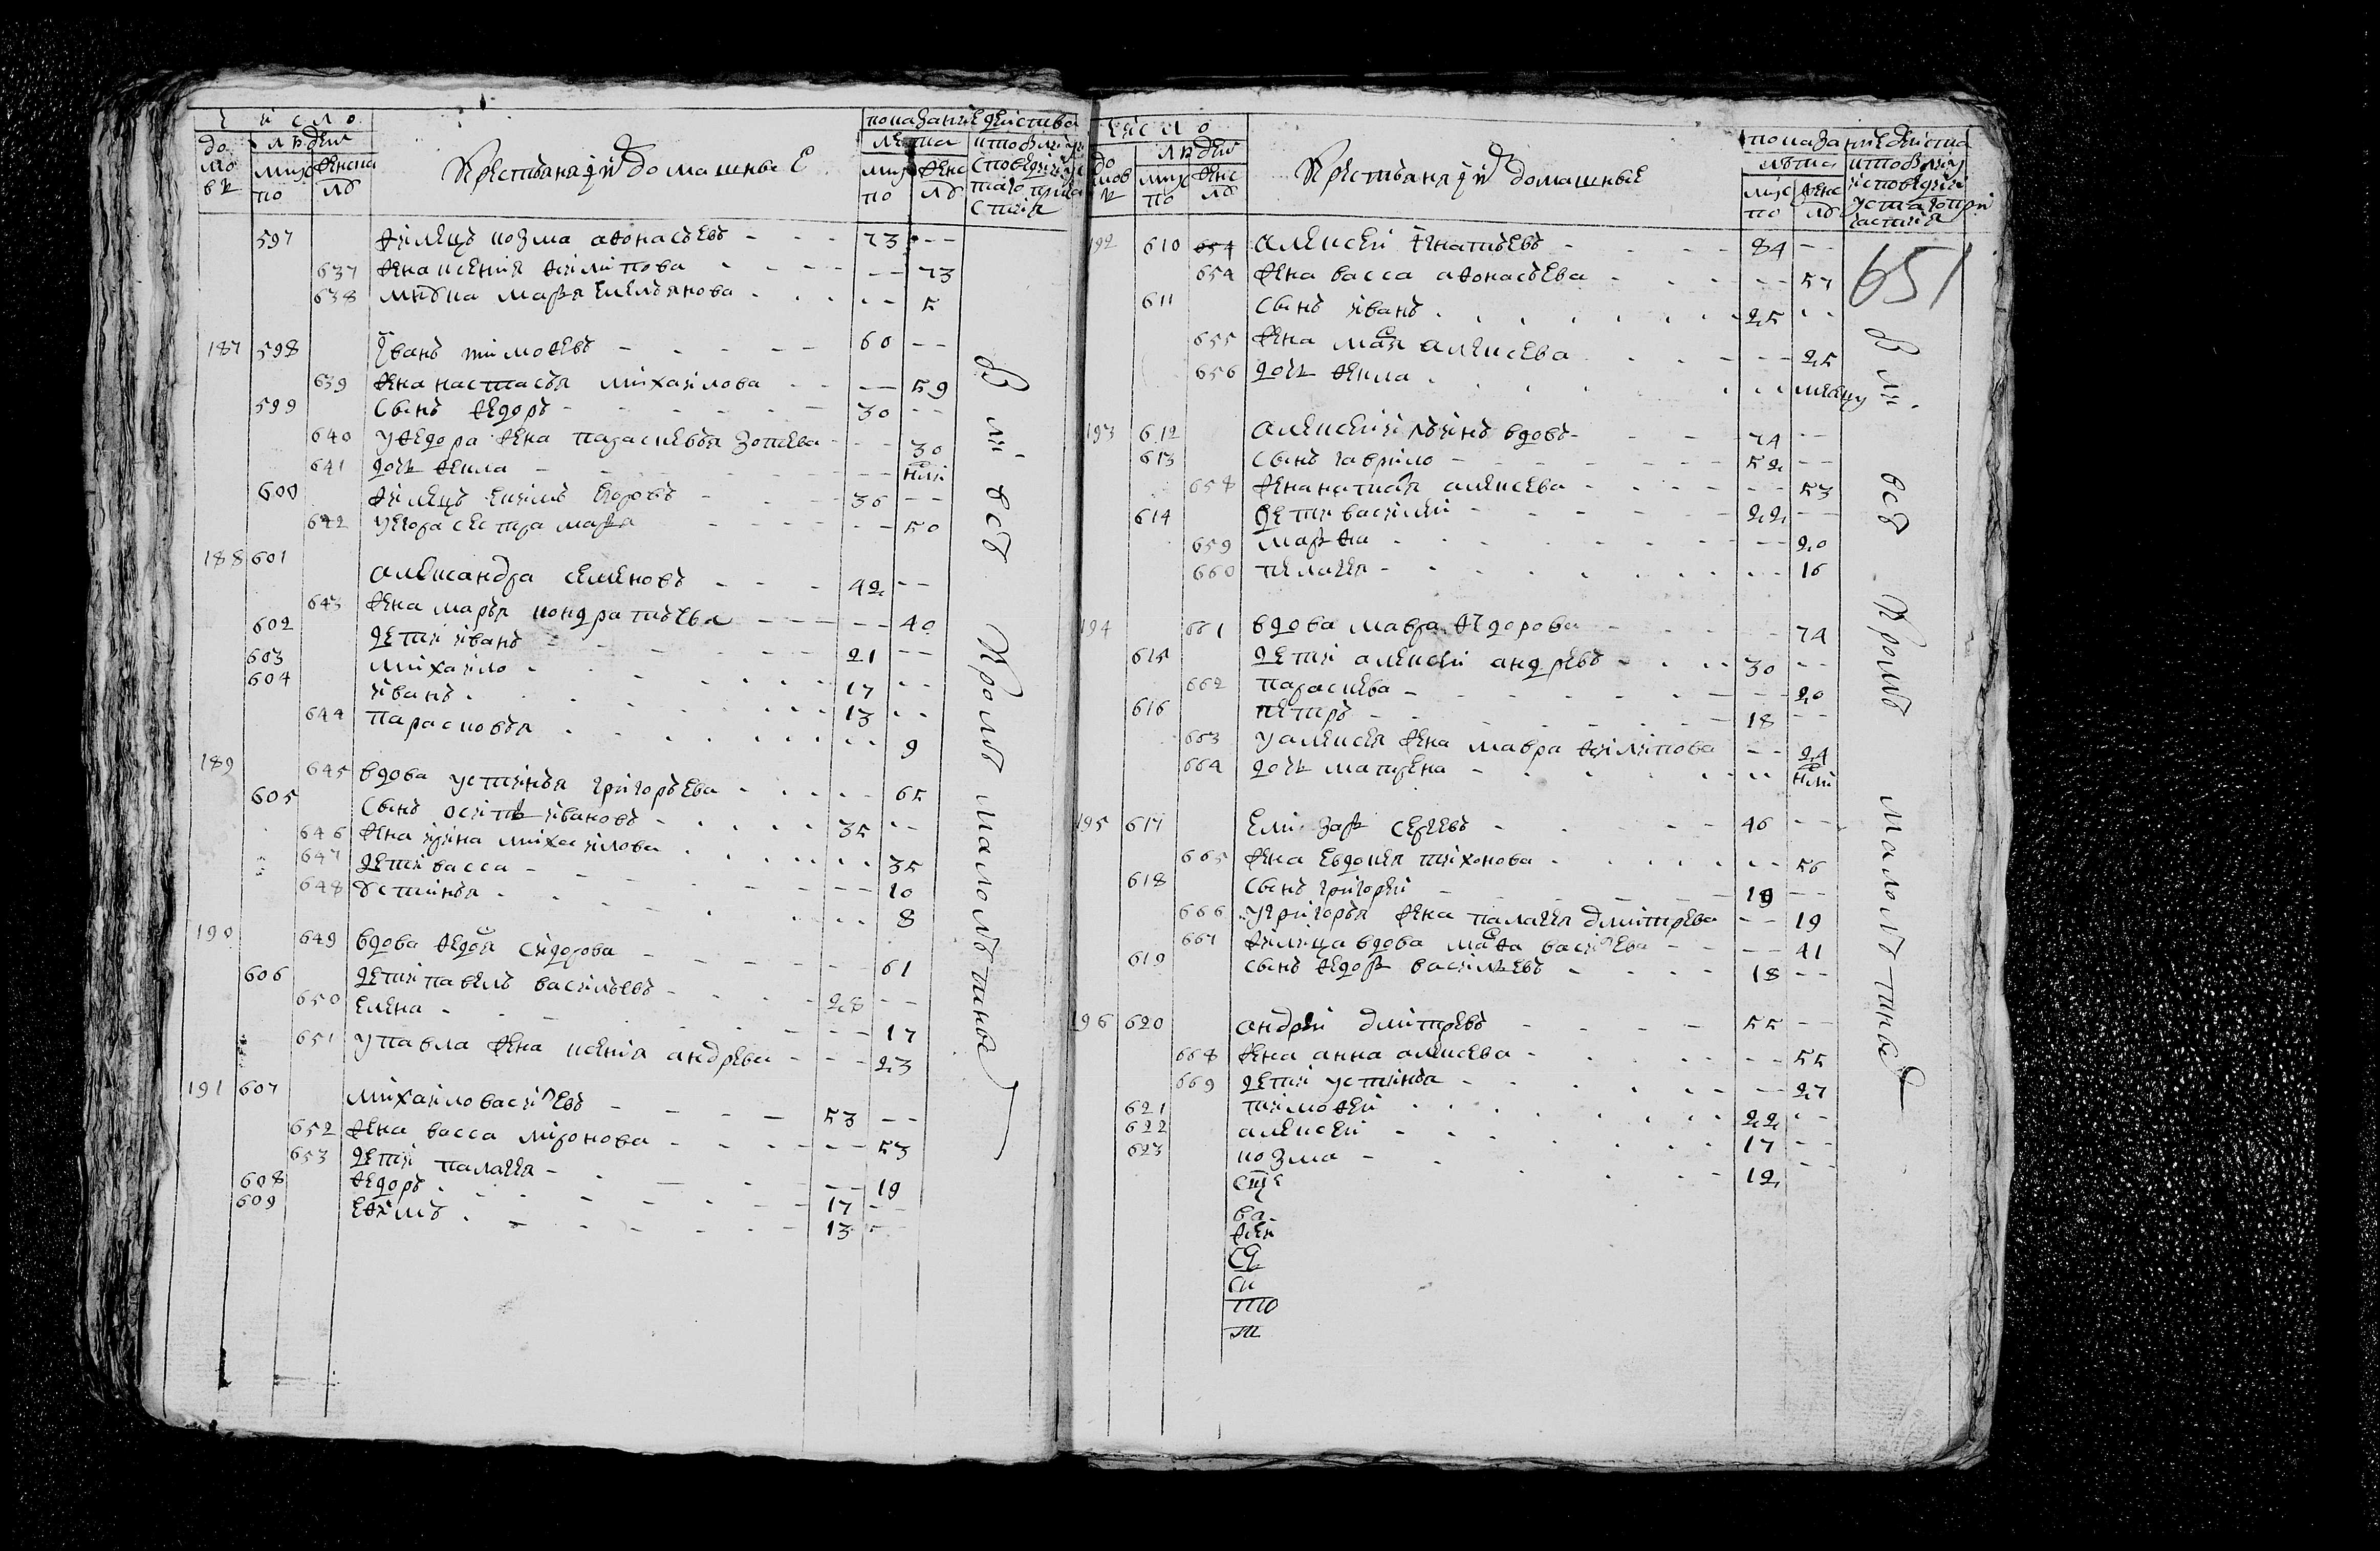 число
домовъ людей
мужеска женска
полъ
Крестьяня и ихъ домашные
показание действа
лета кто были у исповеди и святаго причастия
мужеска женска
полъ
597 жилецъ козма афонасьевъ 73
637 жена ксения филипова 73
638 внука марья емельянова 5
187 598 Iванъ тимофеевъ 60
639 жена настасья михаилова 59
599 сынъ федоръ 30
640 у федора жена парасковья зотеева 30
641 дочь фекла
600 жилецъ егоровъ 36
642 у егора сестра марья 50
188 601 александра семеновъ 42
643 жена марья кондратьева 40
602 дети иванъ 21
603 михаило 17
604 иванъ 13
644 парасковья 9
189 645 вдова устинья григорьева 65
605 сынъ осипъ ивановъ 35
646 жена ирина михаилова 35
647 дети васса 10
648 устинья 8
190 649 вдова федося сидорова 61
606 дети павелъ васильевъ 28
650 елена 17
651 у павла жена ксения андреева 23
191 607 михаило васильевъ 53
652 жена васса миронова 53
653 дети палагея 19
608 федоръ 17
609 ефимъ 13
были все кроме малолетныхъ
число
домовъ людей
мужеска женска
полъ
Крестьяня и ихъ домашные
показание действа
лета кто были у исповеди и святаго причастия
мужеска женска
полъ
651
192 610 654 алексей игнатьевъ 84
654 жена васса афонасьева 57
611 сынъ иванъ 25
655 жена марья алексеева 25
656 дочь фекла месяцу
193 612 алексей ильинъ вдовъ 74
613 сынъ гаврило 52
658 жена наталья алексеева 53
614 дети василий 22
659 марфа 20
660 пелагея 16
194 661 вдова мавра федорова 74
615 дети алексей андреевъ 30
662 парасковья 20
616 петръ 18
663 у алексея жена мавра филипова 24
664 дочь матрена
195 617 елизаръ сергеевъ 46
665 жена евдокия тихонова 56
618 сынъ григорей 19
666 у григорья жена палагея дмитрева 19
667 жилица вдова марфа васильева 41
619 сынъ федоръ васильевъ 18
196 620 андрей дмитревъ 55
668 жена анна алексеева 55
669 дети устинья 27
621 тимофей 22
622 алексей 17
623 козма 12
были все кроме малолетныхъ